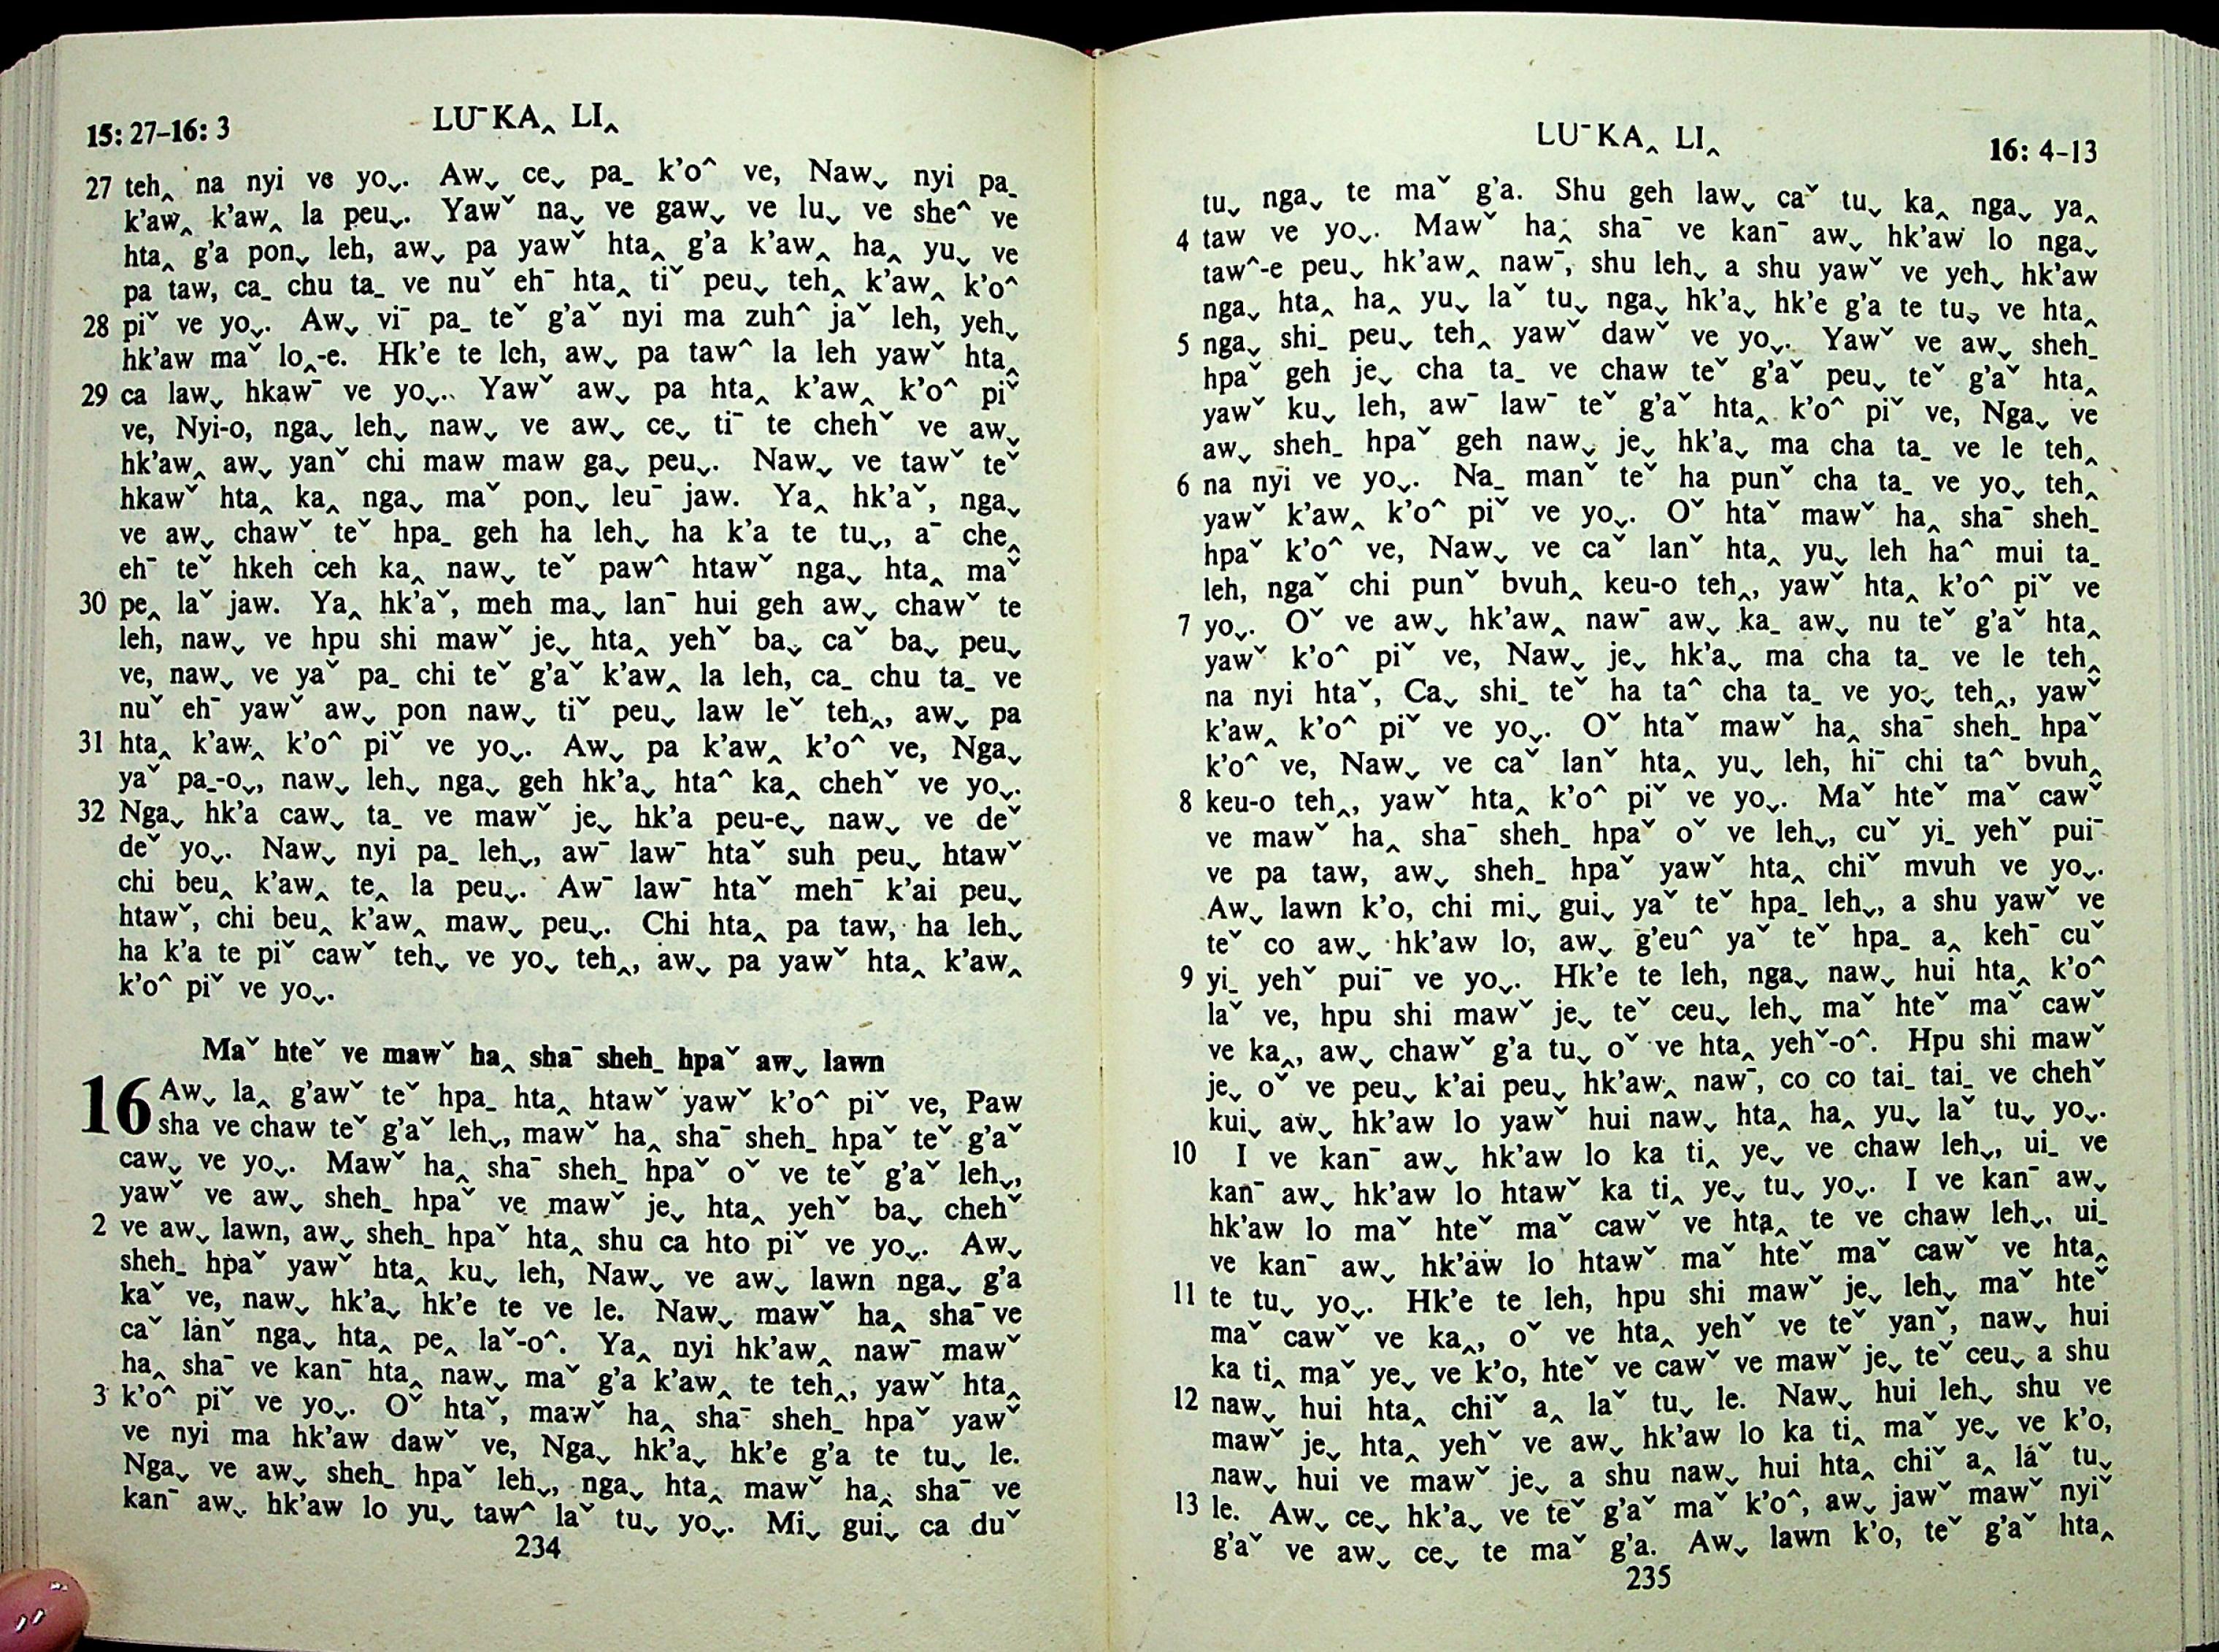 15: 27–16: 3
LUˉKA‸ LI‸
27 teh‸ na nyi ve yoˬ. Awˬ ceˬ pa_ k'o^ ve, Nawˬ nyi pa_
k'aw‸ k'aw‸ la peuˬ. Yawˇ naˬ ve gawˬ ve luˬ ve she^ ve
hta‸ g'a ponˬ leh, awˬ pa yawˇ hta‸ g'a k'aw‸ ha‸ yuˬ ve
pa taw, ca_ chu ta_ ve nuˇ ehˉ hta‸ tiˇ peuˬ teh‸ k'aw‸ k'o^
28 piˇ ve yoˬ. Awˬ viˉ pa_ teˇ g'aˇ nyi ma zuh^ jaˇ leh, yehˬ
hk'aw maˇ lo‸-e. Hk'e te leh, awˬ pa taw^ la leh yawˇ hta‸
29 ca lawˬ hkawˉ ve yoˬ. Yawˇ awˬ pa hta‸ k'aw‸ k'o^ piˇ
ve, Nyi-o, ngaˬ lehˬ nawˬ ve awˬ ceˬ tiˉ te chehˇ ve awˬ
hk'aw‸ awˬ yanˇ chi maw maw gaˬ peuˬ. Nawˬ ve tawˇ teˇ
hkawˇ hta‸ ka‸ ngaˬ maˇ ponˬ leuˉ jaw. Ya‸ hk'aˇ, ngaˬ
ve awˬ chawˇ teˇ hpa_ geh ha lehˬ ha k'a te tuˬ, aˉ che‸
ehˉ teˇ hkeh ceh ka‸ nawˬ teˇ paw^ htawˇ ngaˬ hta‸ maˇ
30 pe‸ laˇ jaw. Ya‸ hk'aˇ, meh maˬ lanˉ hui geh awˬ chawˇ te
leh, nawˬ ve hpu shi mawˇ jeˬ hta‸ yehˇ baˬ caˇ baˬ peuˬ
ve, nawˬ ve yaˇ pa_ chi teˇ g'aˇ k'aw‸ la leh, ca_ chu ta_ ve
nuˇ ehˉ yawˇ awˬ pon nawˬ tiˇ peuˬ law leˇ teh‸, awˬ pa
31 hta‸ k'aw‸ k'o^ piˇ ve yoˬ. Awˬ pa k'aw‸ k'o^ ve, Ngaˬ
yaˇ pa_-oˬ, nawˬ lehˬ ngaˬ geh hk'aˬ hta^ ka‸ chehˇ ve yoˬ.
32 Ngaˬ hk'a cawˬ ta_ ve mawˇ jeˬ hk'a peu-eˬ nawˬ ve deˇ
deˇ yoˬ. Nawˬ nyi pa_ lehˬ, awˉ lawˉ htaˇ suh peuˬ htawˇ
chi beu‸ k'aw‸ te‸ la peuˬ. Awˉ lawˉ htaˇ mehˉ k'ai peuˬ
htawˇ, chi beu‸ k'aw‸ mawˬ peuˬ. Chi hta‸ pa taw, ha lehˬ
ha k'a te piˇ cawˇ tehˬ ve yoˬ teh‸, awˬ pa yawˇ hta‸ k'aw‸
k'o^ piˇ ve yoˬ.
Maˇ hteˇ ve mawˇ ha‸ shaˉ sheh_ hpaˇ awˬ lawn
16 Awˬ la‸ g'awˇ teˇ hpa_ hta‸ htawˇ yawˇ k'o^ piˇ ve, Paw
sha ve chaw teˇ g'aˇ lehˬ, mawˇ ha‸ shaˉ sheh_ hpaˇ teˇ g'aˇ
cawˬ ve yoˬ. Mawˇ ha‸ shaˉ sheh_ hpaˇ oˇ ve teˇ g'aˇ lehˬ,
yawˇ ve awˬ sheh_ hpaˇ ve mawˇ jeˬ hta‸ yehˇ baˬ chehˇ
2 ve awˬ lawn, awˬ sheh_ hpaˇ hta‸ shu ca hto piˇ ve yoˬ. Awˬ
sheh_ hpaˇ yawˇ hta‸ kuˬ leh, Nawˬ ve awˬ lawn ngaˬ g'a
kaˇ ve, nawˬ hk'aˬ hk'e te ve le. Nawˬ mawˇ ha‸ shaˉ ve
caˇ lanˇ ngaˬ hta‸ pe‸ laˇ-o^. Ya‸ nyi hk'aw‸ nawˉ mawˇ
ha‸ shaˉ ve kanˉ hta‸ nawˬ maˇ g'a k'aw‸ te teh‸, yawˇ hta‸
3 k'o^ piˇ ve yoˬ. Oˇ htaˇ, mawˇ ha‸ shaˉ sheh_ hpaˇ yawˇ
ve nyi ma hk'aw dawˇ ve, Ngaˬ hk'aˬ hk'e g'a te tuˬ le.
Ngaˬ ve awˬ sheh_ hpaˇ lehˬ, ngaˬ hta‸ mawˇ ha‸ shaˉ ve
kanˉ awˬ hk'aw lo yuˬ taw^ laˇ tuˬ yoˬ. Miˬ guiˬ ca duˇ
234
LUˉKA‸ LI‸
16: 4–13
tuˬ ngaˬ te maˇ g'a. Shu geh lawˬ caˇ tuˬ ka‸ ngaˬ ya‸
4 taw ve yoˬ. Mawˇ ha‸ shaˉ ve kanˉ awˬ hk'aw lo ngaˬ
taw^-e peuˬ hk'aw‸ nawˉ, shu lehˬ a shu yawˇ ve yehˬ hk'aw
ngaˬ hta‸ ha‸ yuˬ laˇ tuˬ ngaˬ hk'aˬ hk'e g'a te tuˬ ve hta‸
5 ngaˬ shi_ peuˬ teh‸ yawˇ dawˇ ve yoˬ. Yawˇ ve awˬ sheh_
hpaˇ geh jeˬ cha ta_ ve chaw teˇ g'aˇ peuˬ teˇ g'aˇ hta‸
yawˇ kuˬ leh, awˉ lawˉ teˇ g'aˇ hta‸ k'o^ piˇ ve, Ngaˬ ve
awˬ sheh_ hpaˇ geh nawˬ jeˬ hk'aˬ ma cha ta_ ve le teh‸
6 na nyi ve yoˬ. Na_ manˇ teˇ ha punˇ cha ta_ ve yoˬ teh‸
yawˇ k'aw‸ k'o^ piˇ ve yoˬ. Oˇ htaˇ mawˇ ha‸ shaˉ sheh_
hpaˇ k'o^ ve, Nawˬ ve caˇ lanˇ hta‸ yuˬ leh ha^ mui ta_
leh, ngaˇ chi punˇ bvuh‸ keu-o teh‸, yawˇ hta‸ k'o^ piˇ ve
7 yoˬ. Oˇ ve awˬ hk'aw‸ nawˉ awˬ ka_ awˬ nu teˇ g'aˇ hta‸
yawˇ k'o^ piˇ ve, Nawˬ jeˬ hk'aˬ ma cha ta_ ve le teh‸
na nyi htaˇ, Caˬ shi_ teˇ ha ta^ cha ta_ ve yoˬ teh‸, yawˇ
k'aw‸ k'o^ piˇ ve yoˬ. Oˇ htaˇ mawˇ ha‸ shaˉ sheh_ hpaˇ
k'o^ ve, Nawˬ ve caˇ lanˇ hta‸ yuˬ leh, hiˉ chi ta^ bvuh‸
8 keu-o teh‸, yawˇ hta‸ k'o^ piˇ ve yoˬ. Maˇ hteˇ maˇ cawˇ
ve mawˇ ha‸ shaˉ sheh_ hpaˇ oˇ ve lehˬ, cuˇ yi_ yehˇ puiˉ
ve pa taw, awˬ sheh_ hpaˇ yawˇ hta‸ chiˇ mvuh ve yoˬ.
Awˬ lawn k'o, chi miˬ guiˬ yaˇ teˇ hpa_ lehˬ, a shu yawˇ ve
teˇ co awˬ hk'aw lo, awˬ g'eu^ yaˇ teˇ hpa_ a‸ kehˉ cuˇ
9 yi_ yehˇ puiˉ ve yoˬ. Hk'e te leh, ngaˬ nawˬ hui hta‸ k'o^
laˇ ve, hpu shi mawˇ jeˬ teˇ ceuˬ lehˬ maˇ hteˇ maˇ cawˇ
ve ka‸, awˬ chawˇ g'a tuˬ oˇ ve hta‸ yehˇ-o^. Hpu shi mawˇ
jeˬ oˇ ve peuˬ k'ai peuˬ hk'aw‸ nawˉ, co co tai_ tai_ ve chehˇ
kuiˬ awˬ hk'aw lo yawˇ hui nawˬ hta‸ ha‸ yuˬ laˇ tuˬ yoˬ.
10 I ve kanˉ awˬ hk'aw lo ka ti‸ yeˬ ve chaw lehˬ, ui_ ve
kanˉ awˬ hk'aw lo htawˇ ka ti‸ yeˬ tuˬ yoˬ. I ve kanˉ awˬ
hk'aw lo maˇ hteˇ maˇ cawˇ ve hta‸ te ve chaw lehˬ, ui_
ve kanˉ awˬ hk'aw lo htawˇ maˇ hteˇ maˇ cawˇ ve hta‸
11 te tuˬ yoˬ. Hk'e te leh, hpu shi mawˇ jeˬ lehˬ maˇ hteˇ
maˇ cawˇ ve ka‸, oˇ ve hta‸ yehˇ ve teˇ yanˇ, nawˬ hui
ka ti‸ maˇ yeˬ ve k'o, hteˇ ve cawˇ ve mawˇ jeˬ teˇ ceuˬ a shu
12 nawˬ hui hta‸ chiˇ a‸ laˇ tuˬ le. Nawˬ hui lehˬ shu ve
mawˇ jeˬ hta‸ yehˇ ve awˬ hk'aw lo ka ti‸ maˇ yeˬ ve k'o,
nawˬ hui ve mawˇ jeˬ a shu nawˬ hui hta‸ chiˇ a‸ laˇ tuˬ
13 le. Awˬ ceˬ hk'aˬ ve teˇ g'aˇ maˇ k'o^, awˬ jawˇ mawˇ nyiˇ
g'aˇ ve awˬ ceˬ te maˇ g'a. Awˬ lawn k'o, teˇ g'aˇ hta‸
235